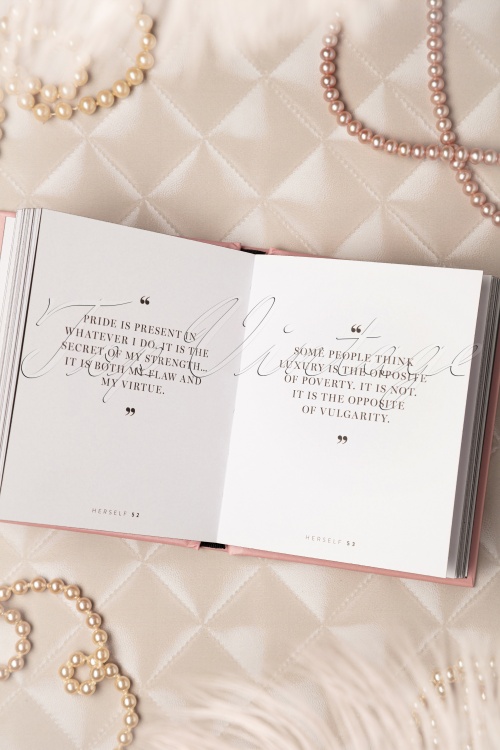 “
PRIDE IS PRESENT IN
WHATEVER I DO. IT IS THE
SECRET OF MY STRENGTH...
IT IS BOTH MY FLAW AND
MY VIRTUE.
”
HERSELF 52
“
SOME PEOPLE THINK
LUXURY IS THE OPPOSITE
OF POVERTY. IT IS NOT.
IT IS THE OPPOSITE
OF VULGARITY.
”
HERSELF 53
Top Vintage